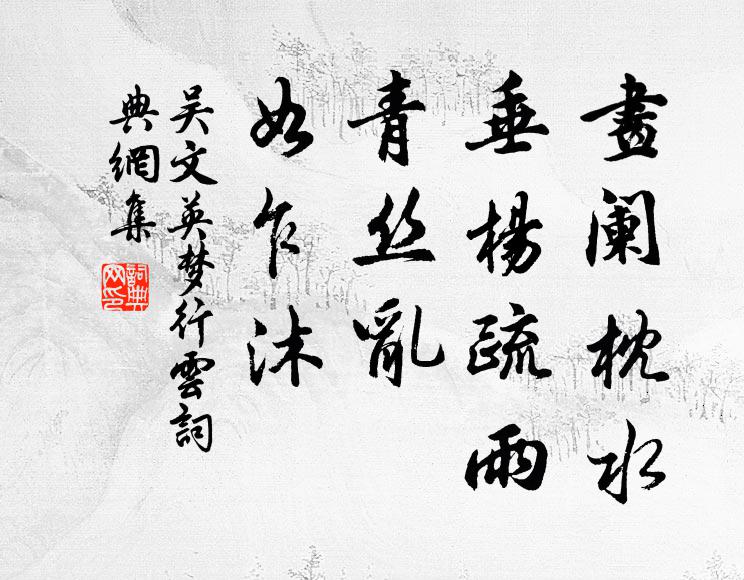 畫闌枕水
垂楊疏雨
青丝亂
如乍沐
吴文英梦行雲詞
典網集
詞典
网印